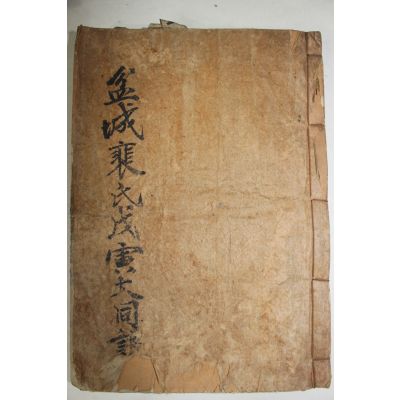 盆城裵氏戊寅大同譜